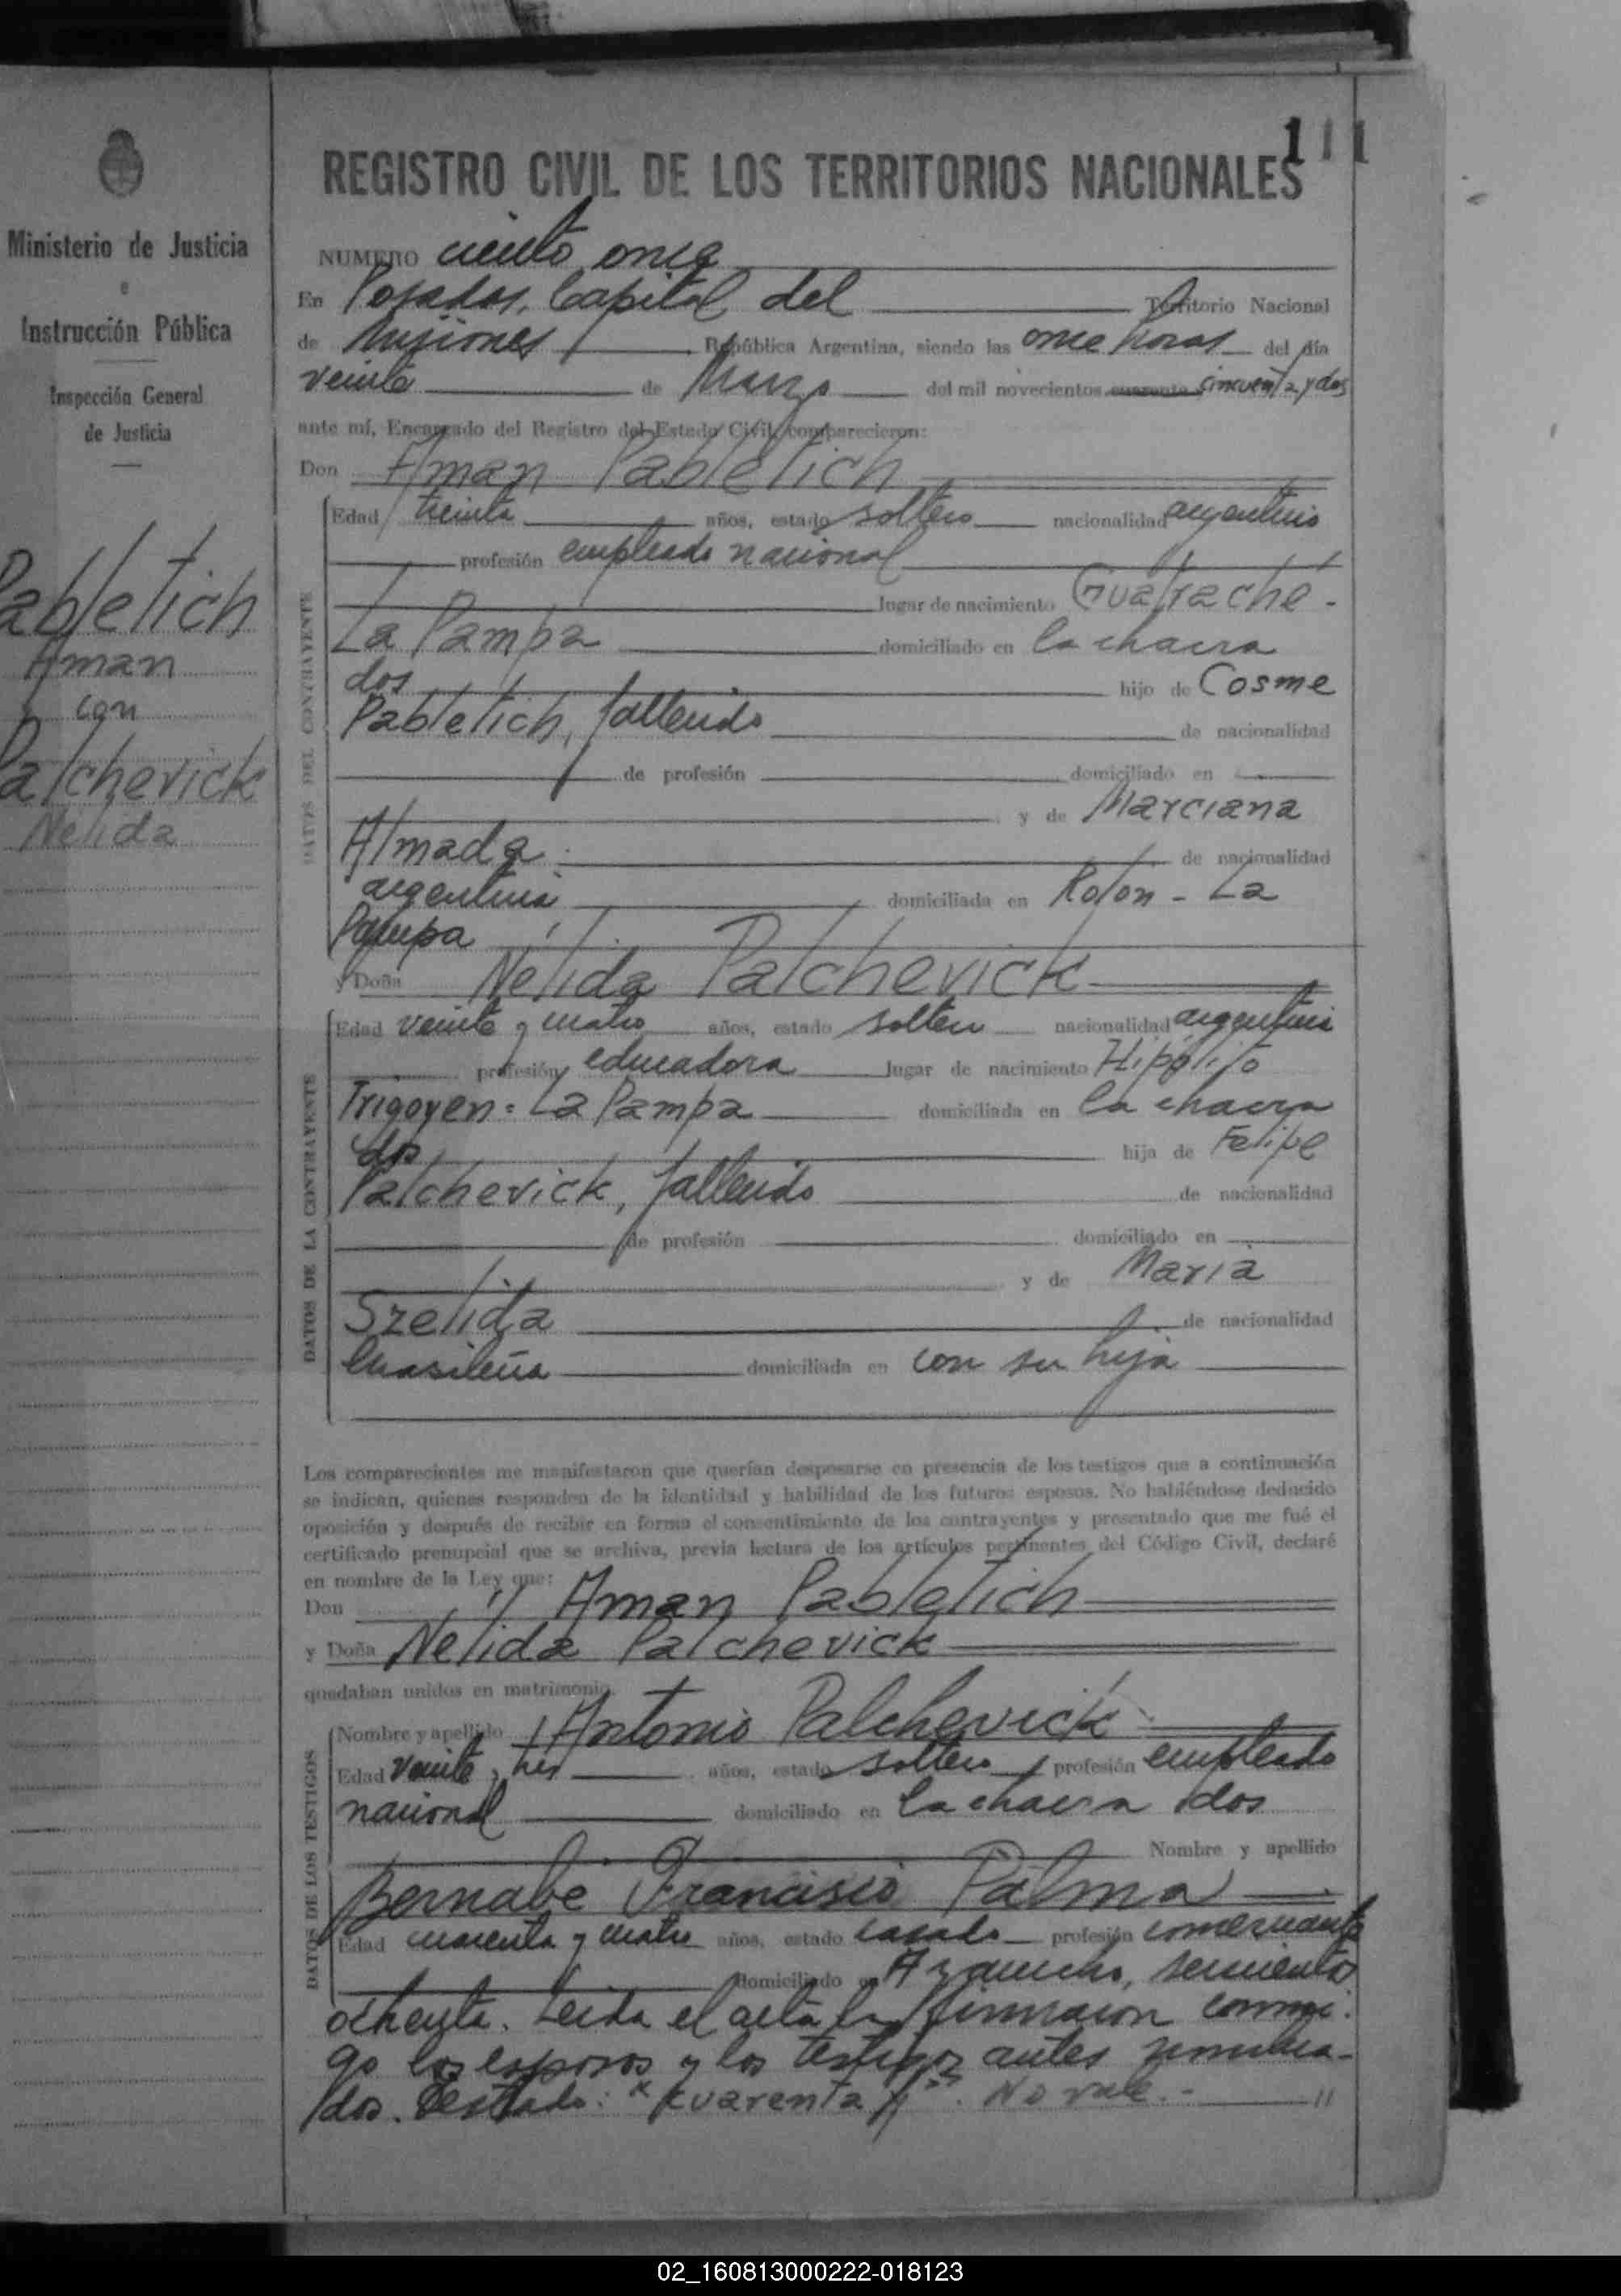 111
REGISTRO CIVIL DE LOS TERRITORIOS NACIONALES
Ministerio de Justicia
e
Instrucción Pública
Inspección General
de Justicia
Pabletich
Aman
con
Palchevick
Nélida
NUMERO ciento once
En Posadas, Capital del Territorio Nacional
de Misiones República Argentina, siendo las once horas del día
veinte de Marzo del mil novecientos cuarenta cincuenta y dos
ante mí, Encargado del Registro del Estado Civil, comparecieron:
Don Aman Pabletich
DATOS DEL CONTRAYENTE
Edad treinta años, estado soltero nacionalidad argentino
profesión empleado nacional
lugar de nacimiento Guatraché -
La Pampa domiciliado en la chacra
dos hijo de Cosme
Pabletich, fallecido de nacionalidad
de profesión domiciliado en
y de Marciana
Almada de nacionalidad
argentina domiciliada en Rolon - La
Pampa
y Doña Nélida Palchevick
DATOS DE LA CONTRAYENTE
Edad veinte y cuatro años, estado soltera nacionalidad argentina
profesión educadora lugar de nacimiento Hipólito
Irigoyen = La Pampa domiciliada en la chacra
dos hija de Felipe
Palchevick, fallecido de nacionalidad
de profesión domiciliado en
y de María
Szelida de nacionalidad
brasileña domiciliada en con su hija
Los comparecientes me manifestaron que querían desposarse en presencia de los testigos que a continuación
se indican, quienes responden de la identidad y habilidad de los futuros esposos. No habiéndose deducido
oposición y después de recibir en forma el consentimiento de los contrayentes y presentado que me fué el
certificado prenupcial que se archiva, previa lectura de los artículos pertinentes del Código Civil, declaré
en nombre de la Ley que:
Don Aman Pabletich
y Doña Nélida Palchevick
quedaban unidos en matrimonio.
DATOS DE LOS TESTIGOS
Nombre y apellido Antonio Palchevick
Edad veinte y tres años, estado soltero profesión empleado
nacional domiciliado en la chacra dos
Nombre y apellido
Bernabe Francisco Palma
Edad cuarenta y cuatro años, estado casado profesión comerciante
domiciliado en Ayacucho, seiscientos
ochenta. Leida el acta la firmaron conmi-
go los esposos y los testigos antes nombra-
dos. Testado: "cuarenta". No vale.-
02_160813000222-018123